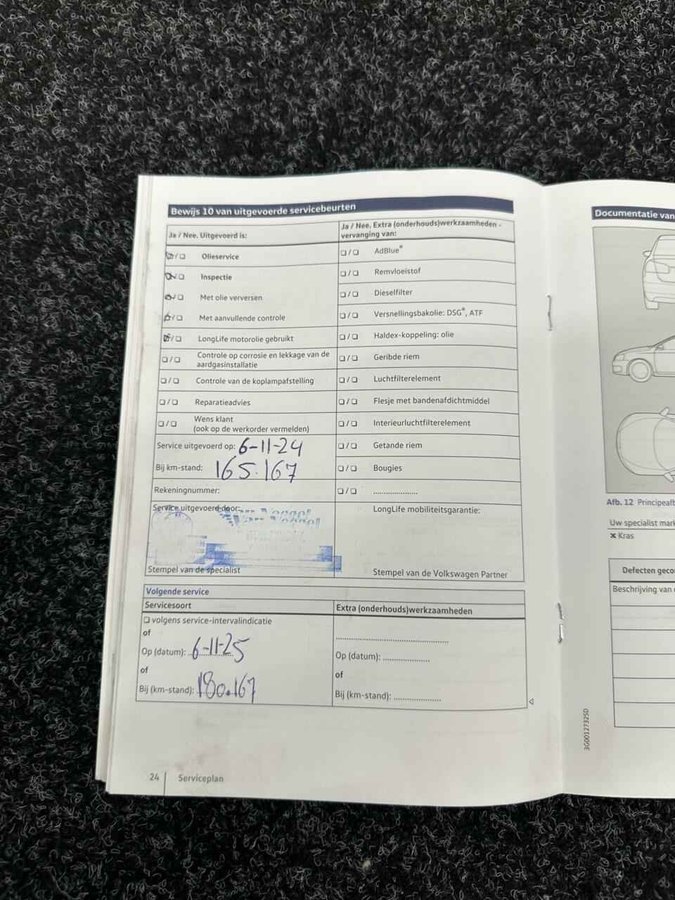 Bewijs 10 van uitgevoerde servicebeurten
Ja / Nee. Uitgevoerd is:
Olieservice
Inspectie
Met olie verversen
Met aanvullende controle
LongLife motorolie gebruikt
Controle op corrosie en lekkage van de
aardgasinstallatie
Controle van de koplampafstelling
Reparatieadvies
Wens klant
(ook op de werkorder vermelden)
Service uitgevoerd op: 6-11-24
Bij km-stand: 165.167
Rekeningnummer:
Service uitgevoerd door:
Stempel van de specialist
Ja / Nee. Extra (onderhouds)werkzaamheden -
vervanging van:
AdBlue®
Remvloeistof
Dieselfilter
Versnellingsbakolie: DSG®, ATF
Haldex-koppeling: olie
Geribde riem
Luchtfilterelement
Flesje met bandenafdichtmiddel
Interieurluchtfilterelement
Getande riem
Bougies
....................
LongLife mobiliteitsgarantie:
Stempel van de Volkswagen Partner
Volgende service
Servicesoort
volgens service-intervalindicatie
of
Op (datum): 6-11-25
of
Bij (km-stand): 180.167
Extra (onderhouds)werkzaamheden
Op (datum): ....................
of
Bij (km-stand): ....................
24 Serviceplan
Documentatie van
Afb. 12 Principeaft
Uw specialist mark
× Kras
Defecten geco
Beschrijving van
3G0012732SD